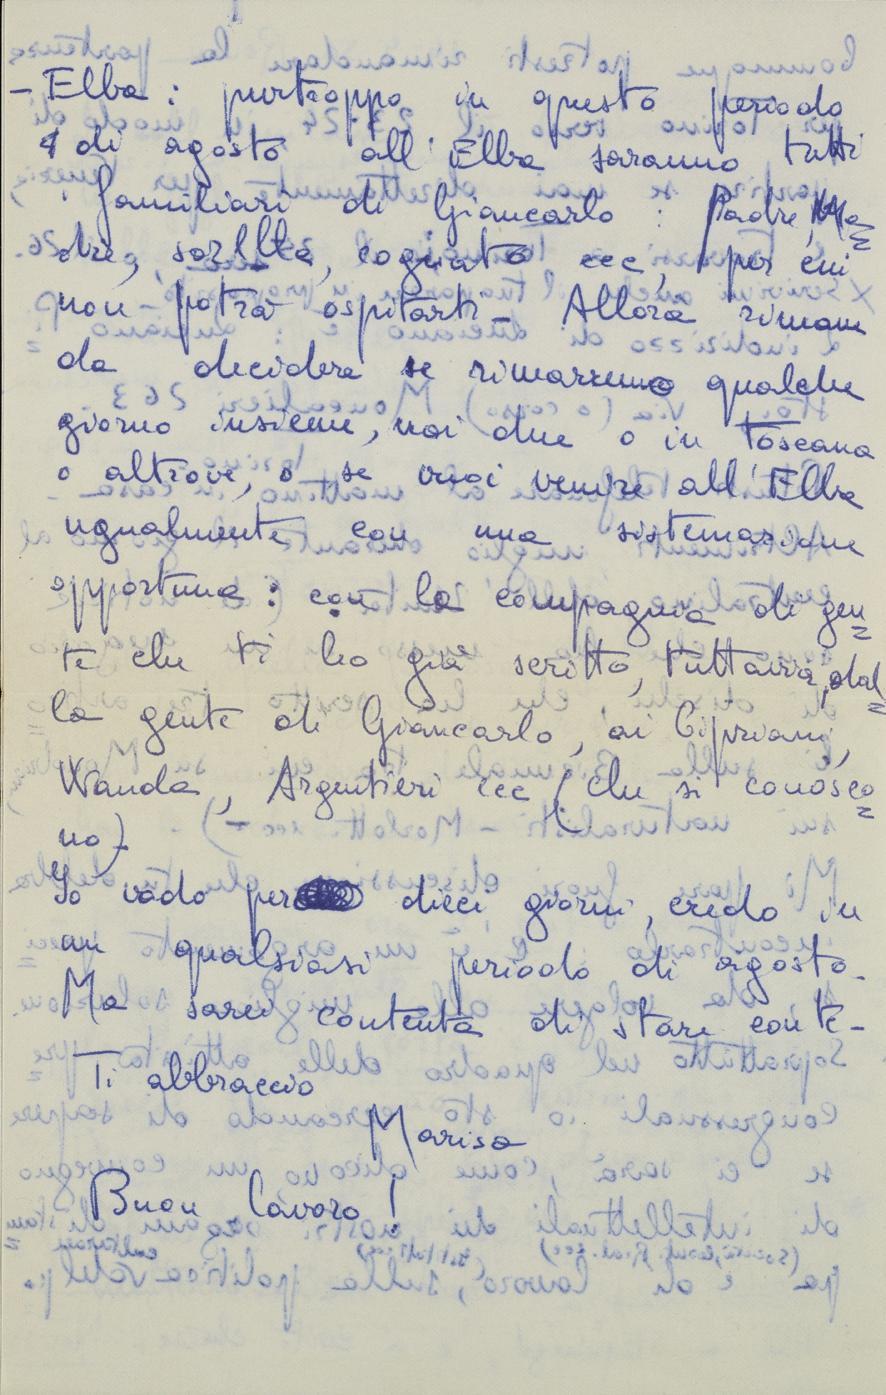 - Elba: purtroppo in questo periodo
di agosto all'Elba saranno tutti
i familiari di Giancarlo: Padre, Ma=
dre, sorella, cognato ecc, per cui
non potrà ospitarti - Allora rimane
da decidere se rimarremo qualche
giorno insieme, noi due o in Toscana
o altrove, o se vuoi venire all'Elba
ugualmente con una sistemazione
opportuna: con la compagnia di gen=
te che ti ho già scritto, tuttavia, dal=
la gente di Giancarlo, ai Cipriani,
Wanda, Argentieri ecc (che si conosco=
no)
Io vado per dieci giorni, credo in
un qualsiasi periodo di agosto.
Ma sarei contenta di stare con te -
Ti abbraccio
Marisa
Buon lavoro!